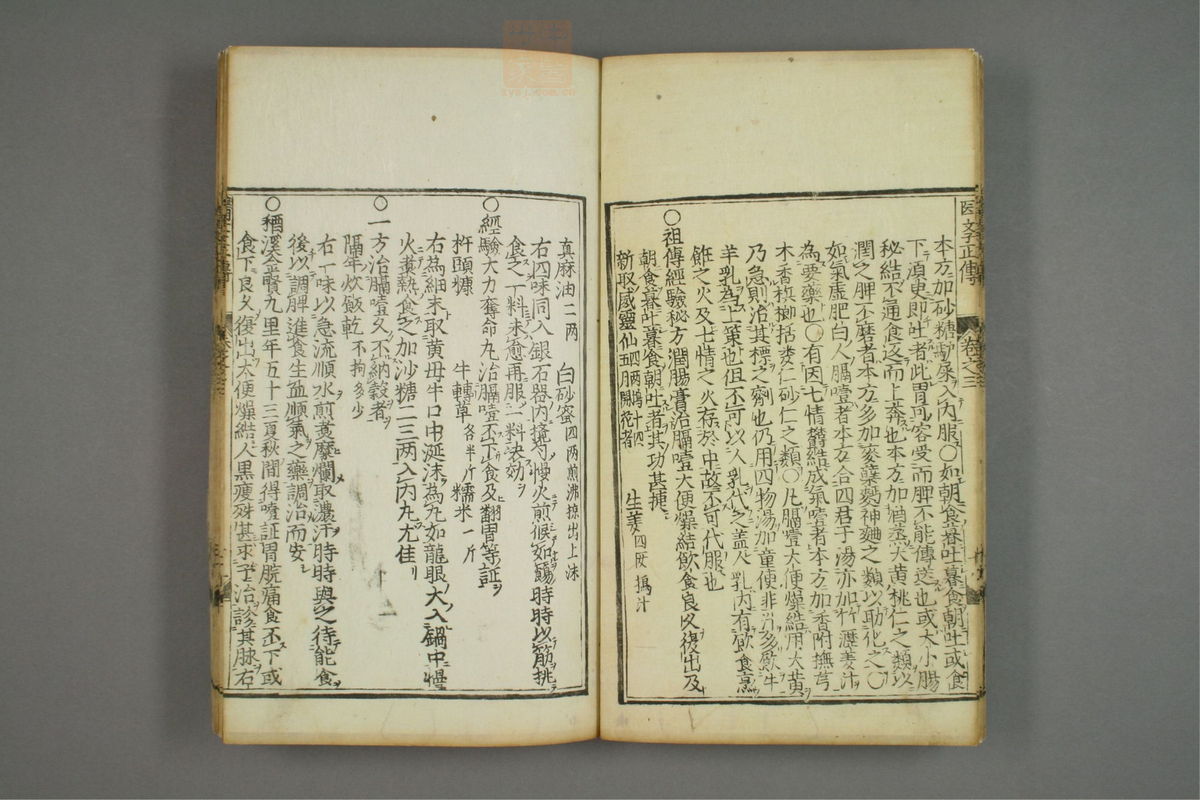 医学正傳
卷之三
本方加砂糖䭾尿入内服○如朝食暮吐暮食朝吐或食
下須臾即吐者此胃可容受而脾不能傳送也或大小腸
秘結不通食返而上奔也本方加酒蒸大黄桃仁之類以
潤之脾不磨者本方多加麥蘗麹神麯之類以助化之○
如氣虚肥白人膈噎者本方合四君子湯亦加竹瀝姜汁
為要藥也○有因七情欝結成氣噎者本方加香附撫芎
木香檳榔括蔞仁砂仁之類○凡膈噎大便燥結用大黄
乃急則治其標之劑也仍用四物湯加童便韭汁多飲牛
羊乳為上策也但不可以人乳代之蓋人乳内有飲食烹
飪之火及七情之火存於中故不可代服也
○祖傳經驗秘方潤腸膏治膈噎大便燥結飲食良久復出及
朝食暮吐暮食朝吐者其功甚捷
新取威靈仙四両搗汁四五月開花者 生姜四両搗汁
真麻油二両 白砂蜜四両煎沸掠出上沫
右四味同入銀石器内攪匀慢火煎候如餳時時以筯挑
食之一料未愈再服一料決効
○經驗大力奪命丸治膈噎不下食及翻胃等証
杵頭糠 牛轉草各半斤 糯米一斤
右為細末取黄母牛口中涎沫為丸如龍眼大入鍋中慢
火煮熟食之加沙糖二三両入内丸尤佳
○一方治膈噎久不納穀者
隔年炊飯乾不拘多少
右一味以急流順水煎煮糜爛取濃汁時時與之待能食
後以調脾進食生血順氣之藥調治而安
○稠溪金賢九里年五十三夏秋間得噎証胃脘痛食不下或
食下良久復出大便燥結人黒痩殊甚求予治診其脉右